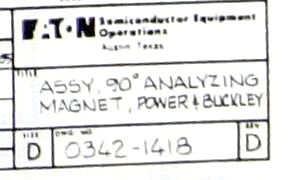 EATON Semiconductor Equipment
Operations
Austin Texas
TITLE
ASSY, 90° ANALYZING
MAGNET, POWER & BUCKLEY
SIZE DWG NO. REV
D 0342-1418 D